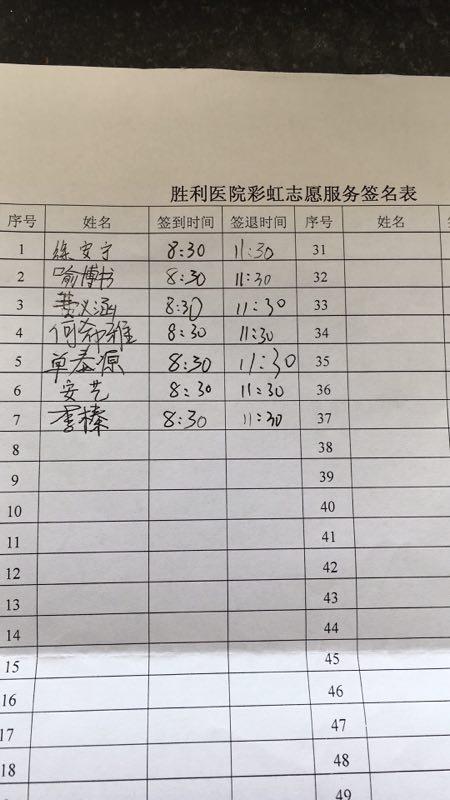 胜利医院彩虹志愿服务签名表
序号 姓名 签到时间 签退时间 序号 姓名 签
1 徐安宁 8:30 11:30 31
2 喻博书 8:30 11:30 32
3 8:30 11:30 33
4 何希雅 8:30 11:30 34
5 单泰源 8:30 11:30 35
6 安艺 8:30 11:30 36
7 李榛 8:30 11:30 37
8 38
9 39
10 40
11 41
12 42
13 43
14 44
15 45
16 46
17 47
18 48
49